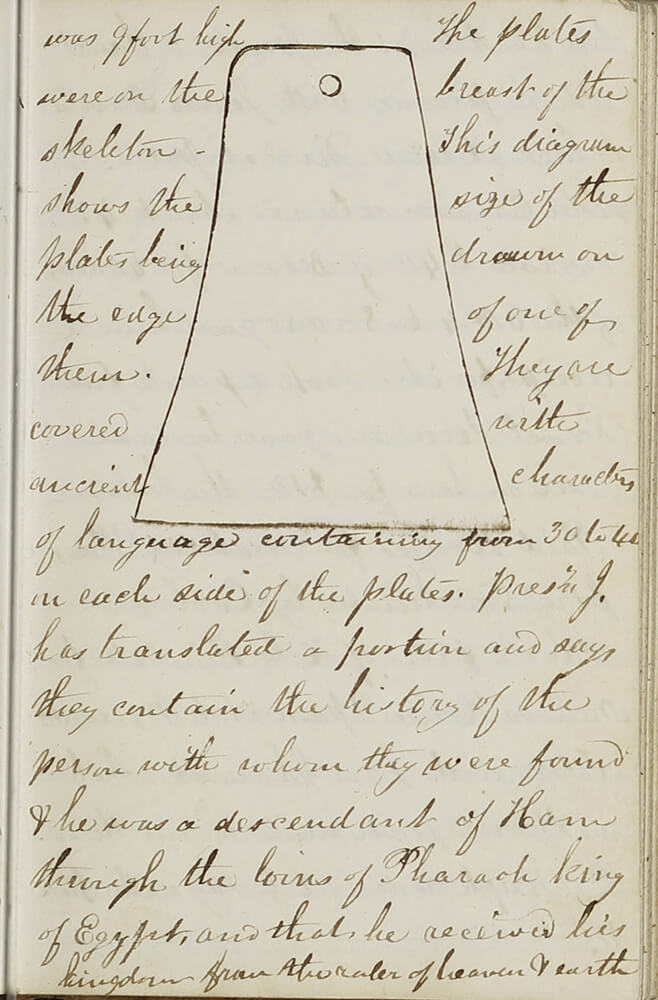 was 9 foot high The plates
were on the breast of the
skeleton - This diagram
shows the size of the
plates being drawn on
the edge of one of
them. They are
covered with
ancient characters
of language containing from 30 to 40
on each side of the plates. Prest J.
has translated a portion and says
they contain the history of the
person with whom they were found
& he was a descendant of Ham
through the loins of Pharaoh king
of Egypt, and that he received his
kingdom from the ruler of heaven & earth